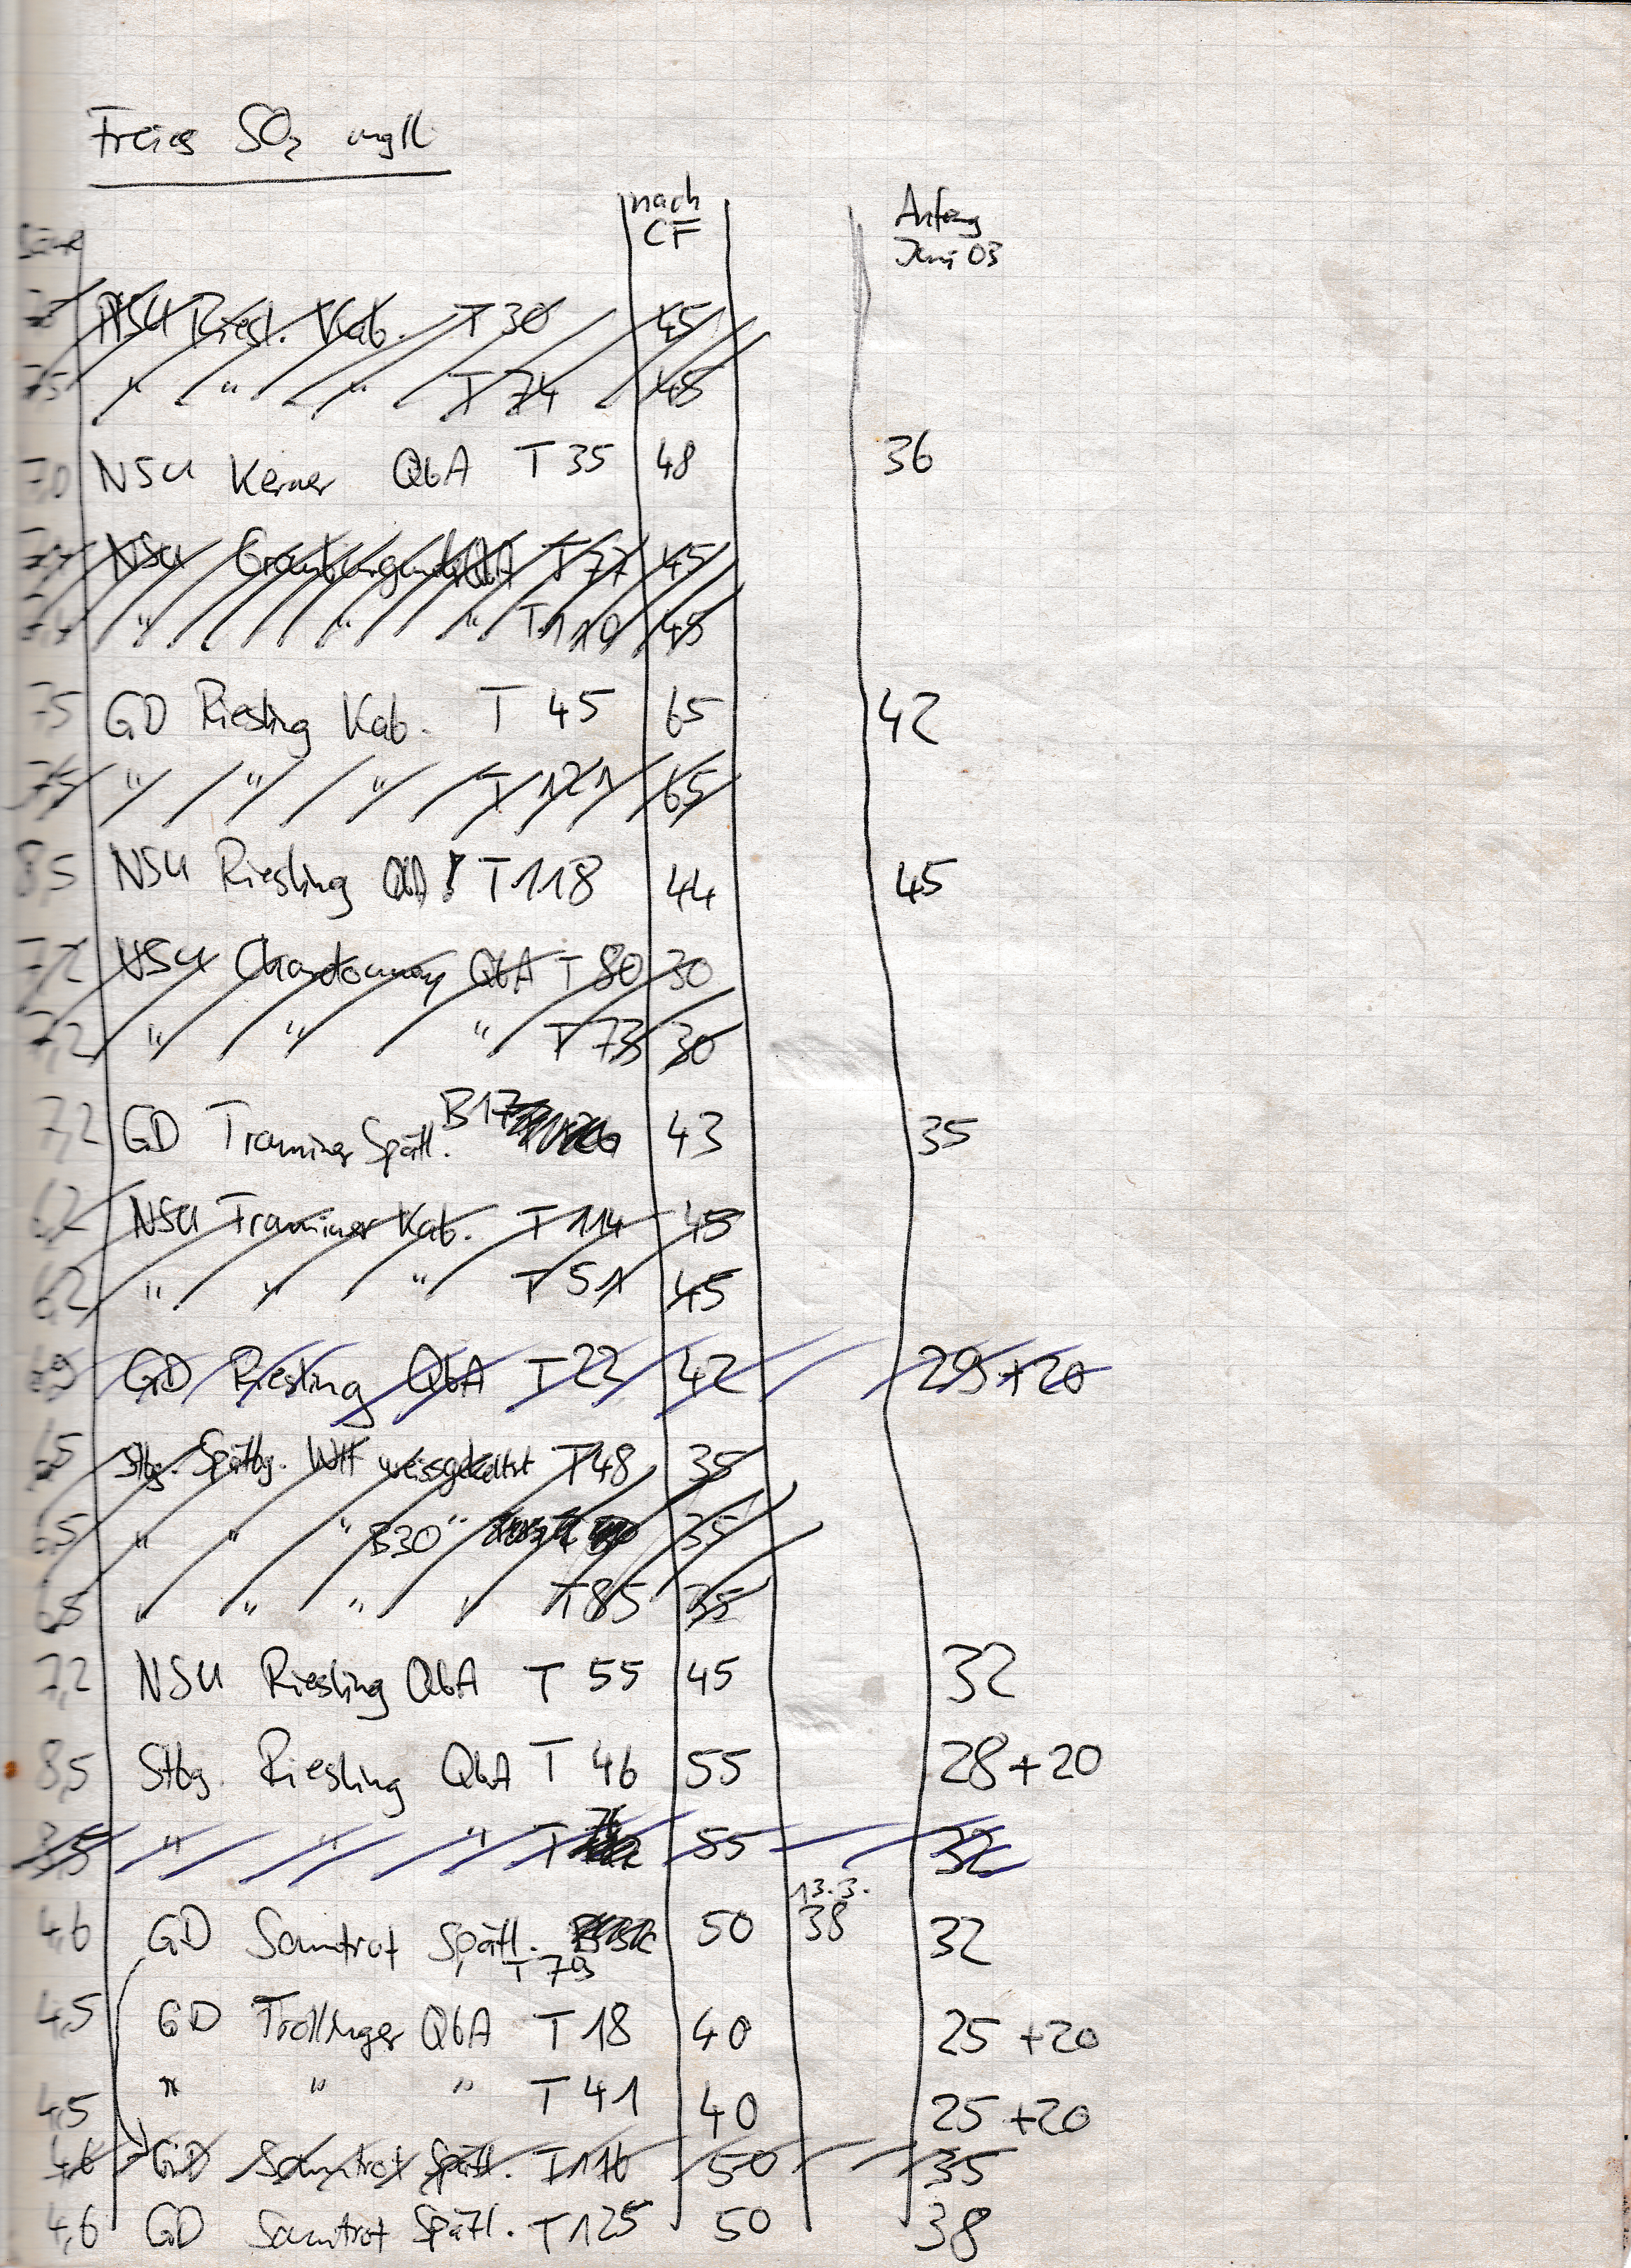 Freies SO₂ mg/l
nach CF Anfang Juni 03
Säure
NSU Riesl. Kab. T 30 45
7,5 " " " T 74 48
7,0 NSU Kerner QbA T 35 48 36
NSU Grauburgund. QbA T 77 45
7,4 " " " T 110 45
7,5 GD Riesling Kab. T 45 65 42
7,5 " " " T 121 65
8,5 NSU Riesling QbA ! T 118 44 45
7,2 NSU Chardonnay QbA T 80 30
7,2 " " " T 73 30
7,2 GD Traminer Spätl. B17 43 35
6,2 NSU Traminer Kab. T 114 45
6,2 " " " T 51 45
GD Riesling QbA T 22 42 29 + 20
6,5 Stbg. Spätbg. WH weissgekeltert T 48 35
6,5 " " " B30 " 35
6,5 " " " " T 85 35
7,2 NSU Riesling QbA T 55 45 32
8,5 Stbg. Riesling QbA T 46 55 28 + 20
8,5 " " " T 55 32
13.3.
4,6 GD Samtrot Spätl. 50 38 32
T 79
4,5 GD Trollinger QbA T 18 40 25 + 20
4,5 " " " T 41 40 25 + 20
4,6 GD Samtrot Spätl. T 116 50 35
4,6 GD Samtrot Spätl. T 125 50 38